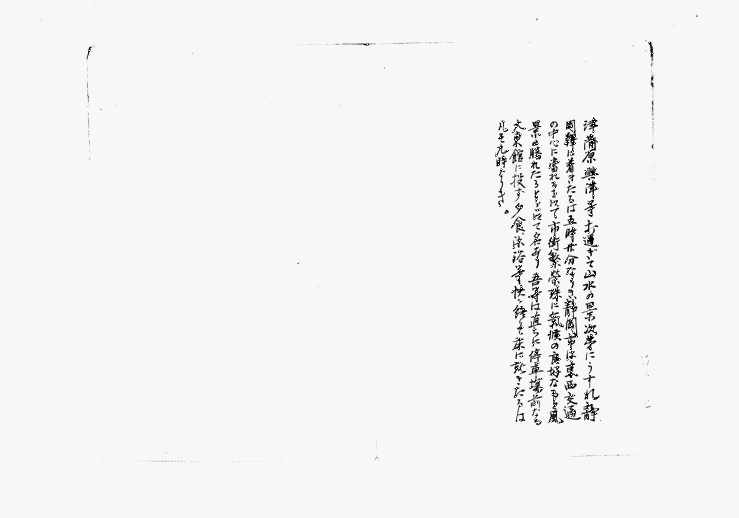 津蒲原興津等を過ぎて山水の景次第にうすれ静
岡驛に着きたるは五時廿分なりき静岡市は東西交通
の中心に當れるを以て市街繁榮殊に氣候の良好なると風
景に勝れたるとを以て名あり吾等は直ちに停車場前なる
大東館に投す夕食、沐浴等を終へて床に就きたるは
九時なりき。